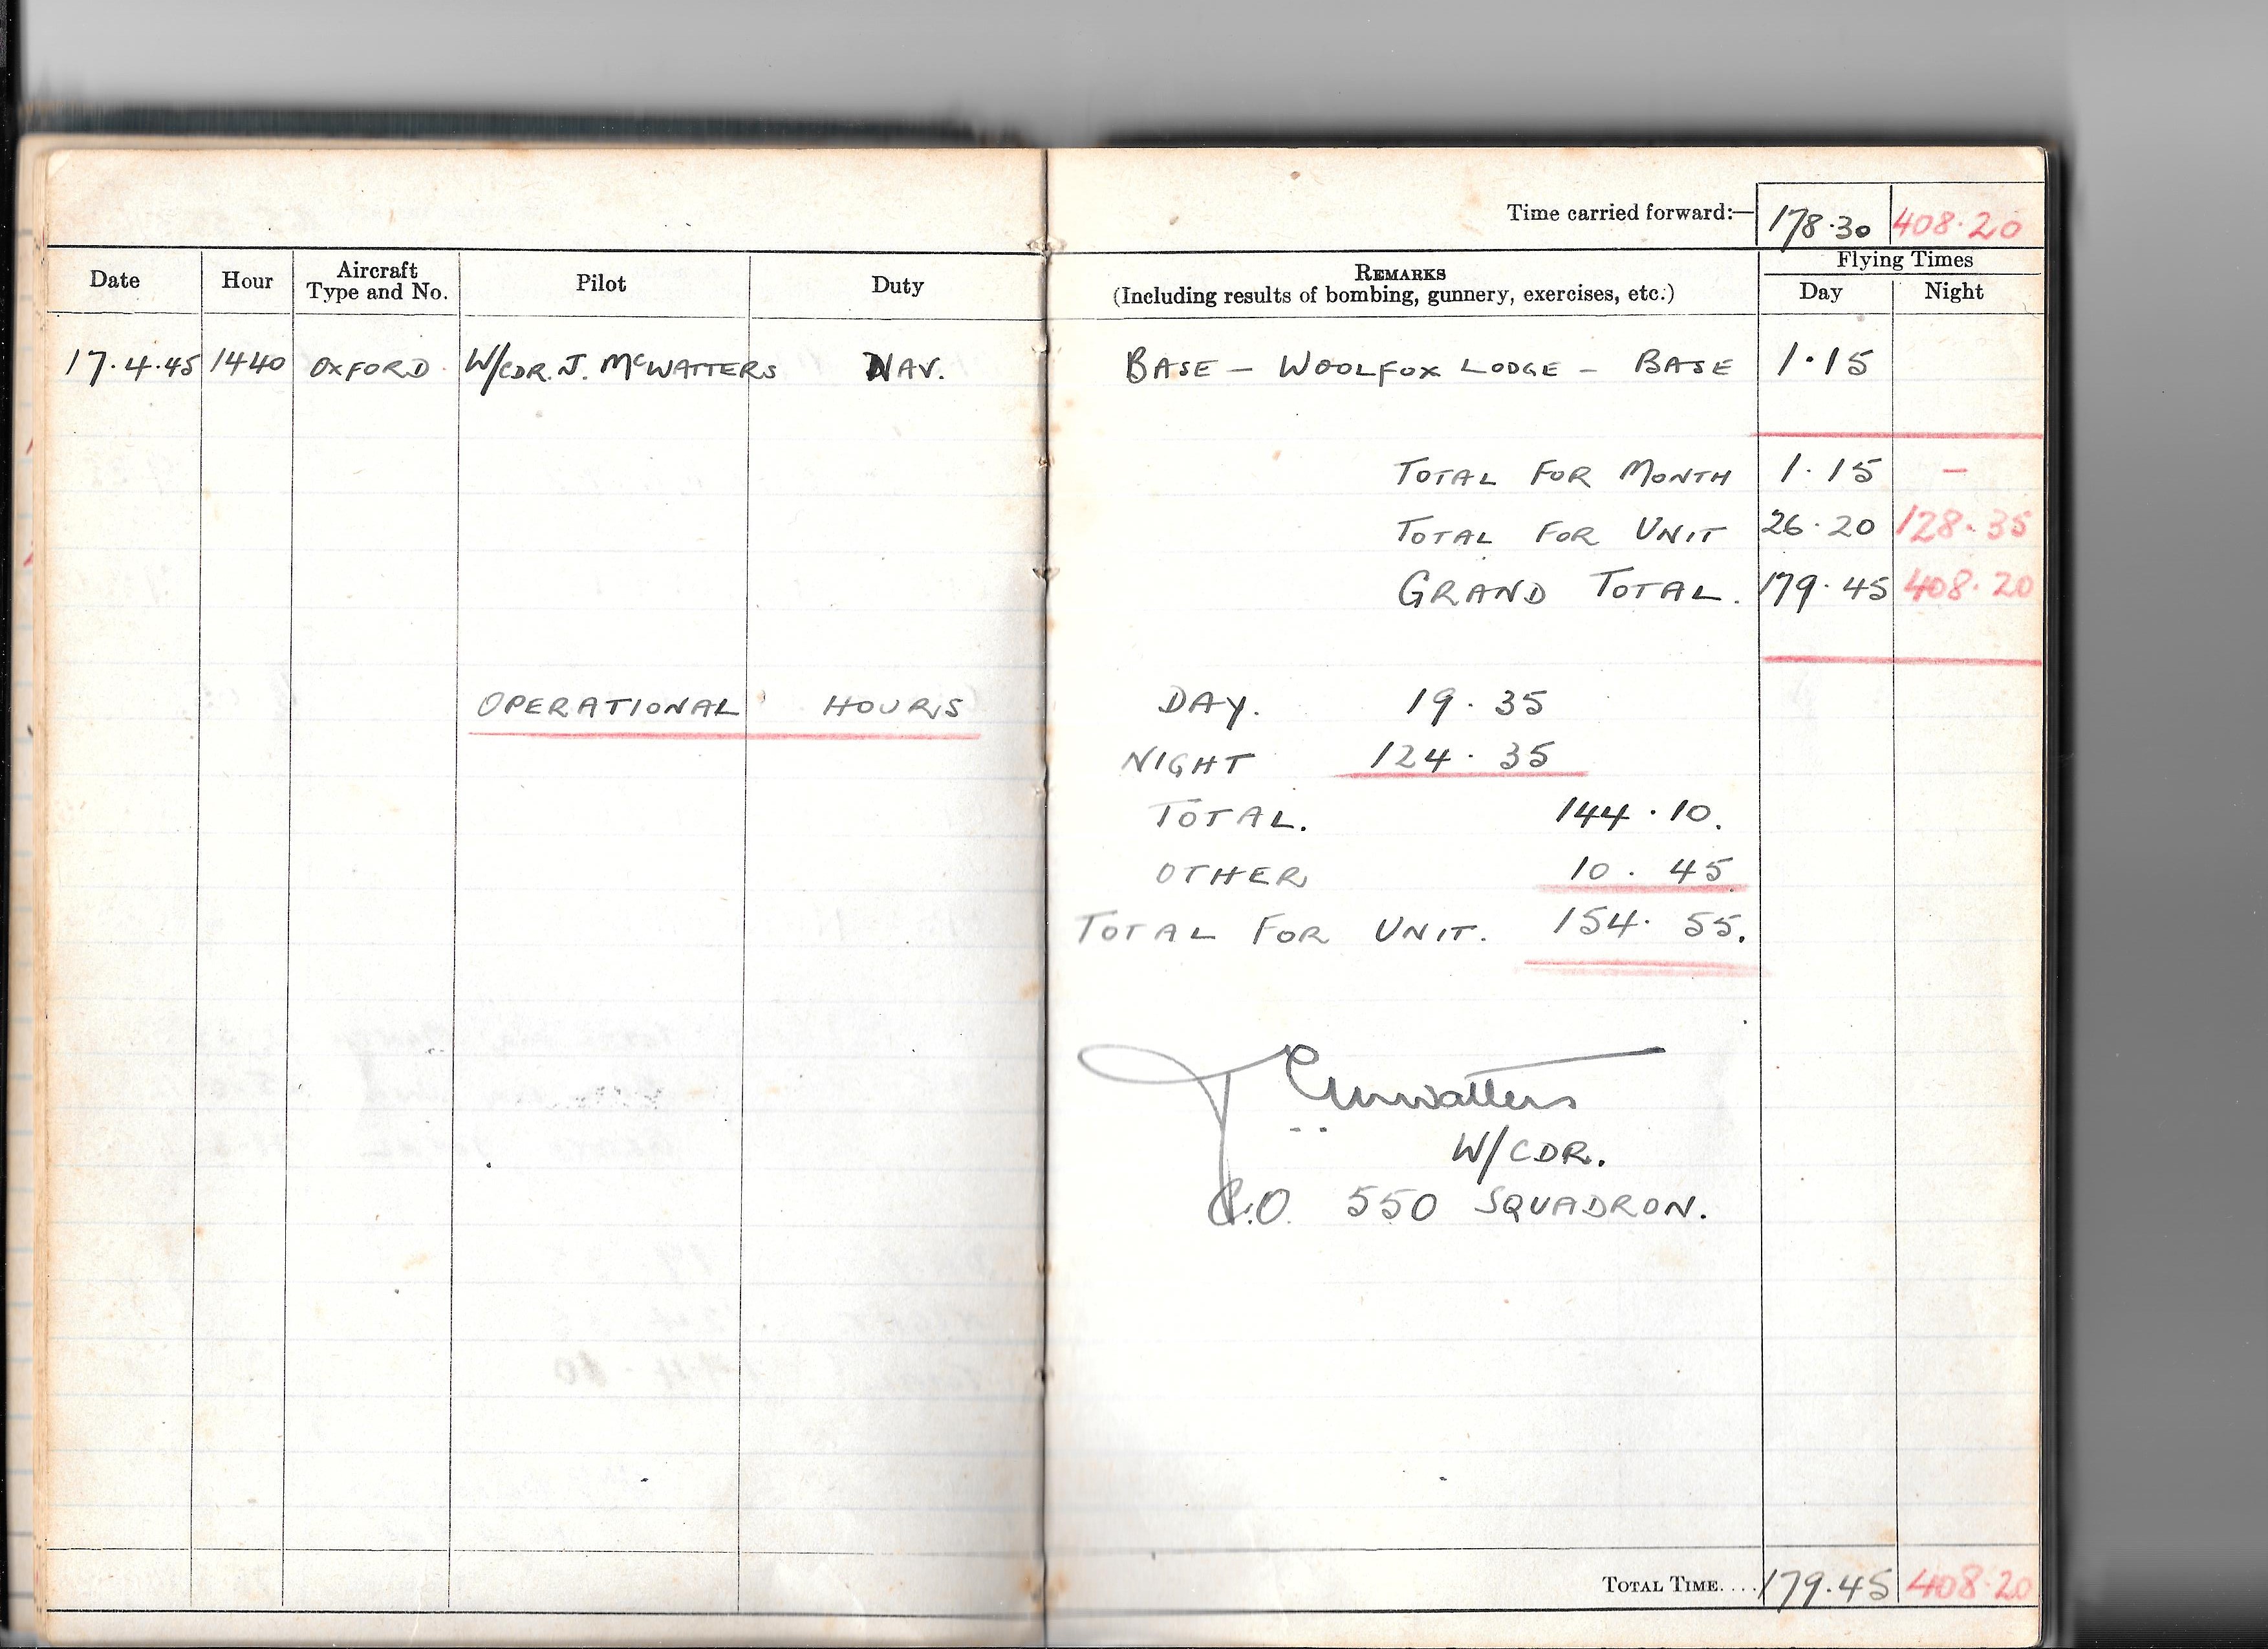 Time carried forward:— 178·30 408·20
Date Hour Aircraft Type and No. Pilot Duty REMARKS (Including results of bombing, gunnery, exercises, etc.) Flying Times Day Night
17.4.45 1440 OXFORD W/CDR. J. McWATTERS NAV. BASE — WOOLFOX LODGE — BASE 1·15
TOTAL FOR MONTH 1·15 —
TOTAL FOR UNIT 26·20 128·35
GRAND TOTAL. 179·45 408·20
OPERATIONAL HOURS DAY. 19·35
NIGHT 124·35
TOTAL. 144·10.
OTHER 10.45
TOTAL FOR UNIT. 154·55.
W/CDR.
C.O. 550 SQUADRON.
TOTAL TIME.... 179·45 408·20